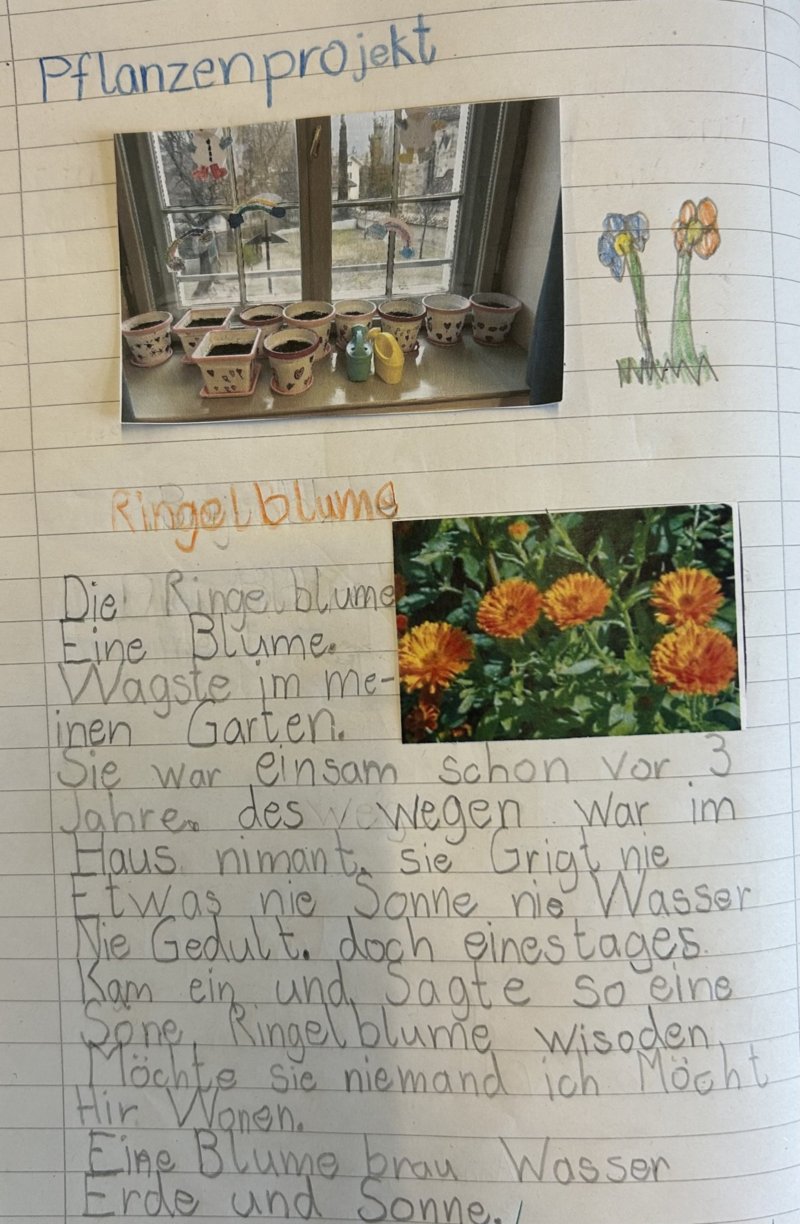 Pflanzenprojekt
Ringelblume
Die Ringelblume
Eine Blume.
Wagste im me-
inen Garten.
Sie war einsam schon vor 3
Jahre. des wegen war im
Haus nimant. sie Grigt nie
Etwas nie Sonne nie Wasser
Nie Gedult. doch einestages
Kam ein und Sagte so eine
Söne Ringelblume wisoden
Möchte sie niemand ich Möcht
Hir Wonen.
Eine Blume brau Wasser
Erde und Sonne.